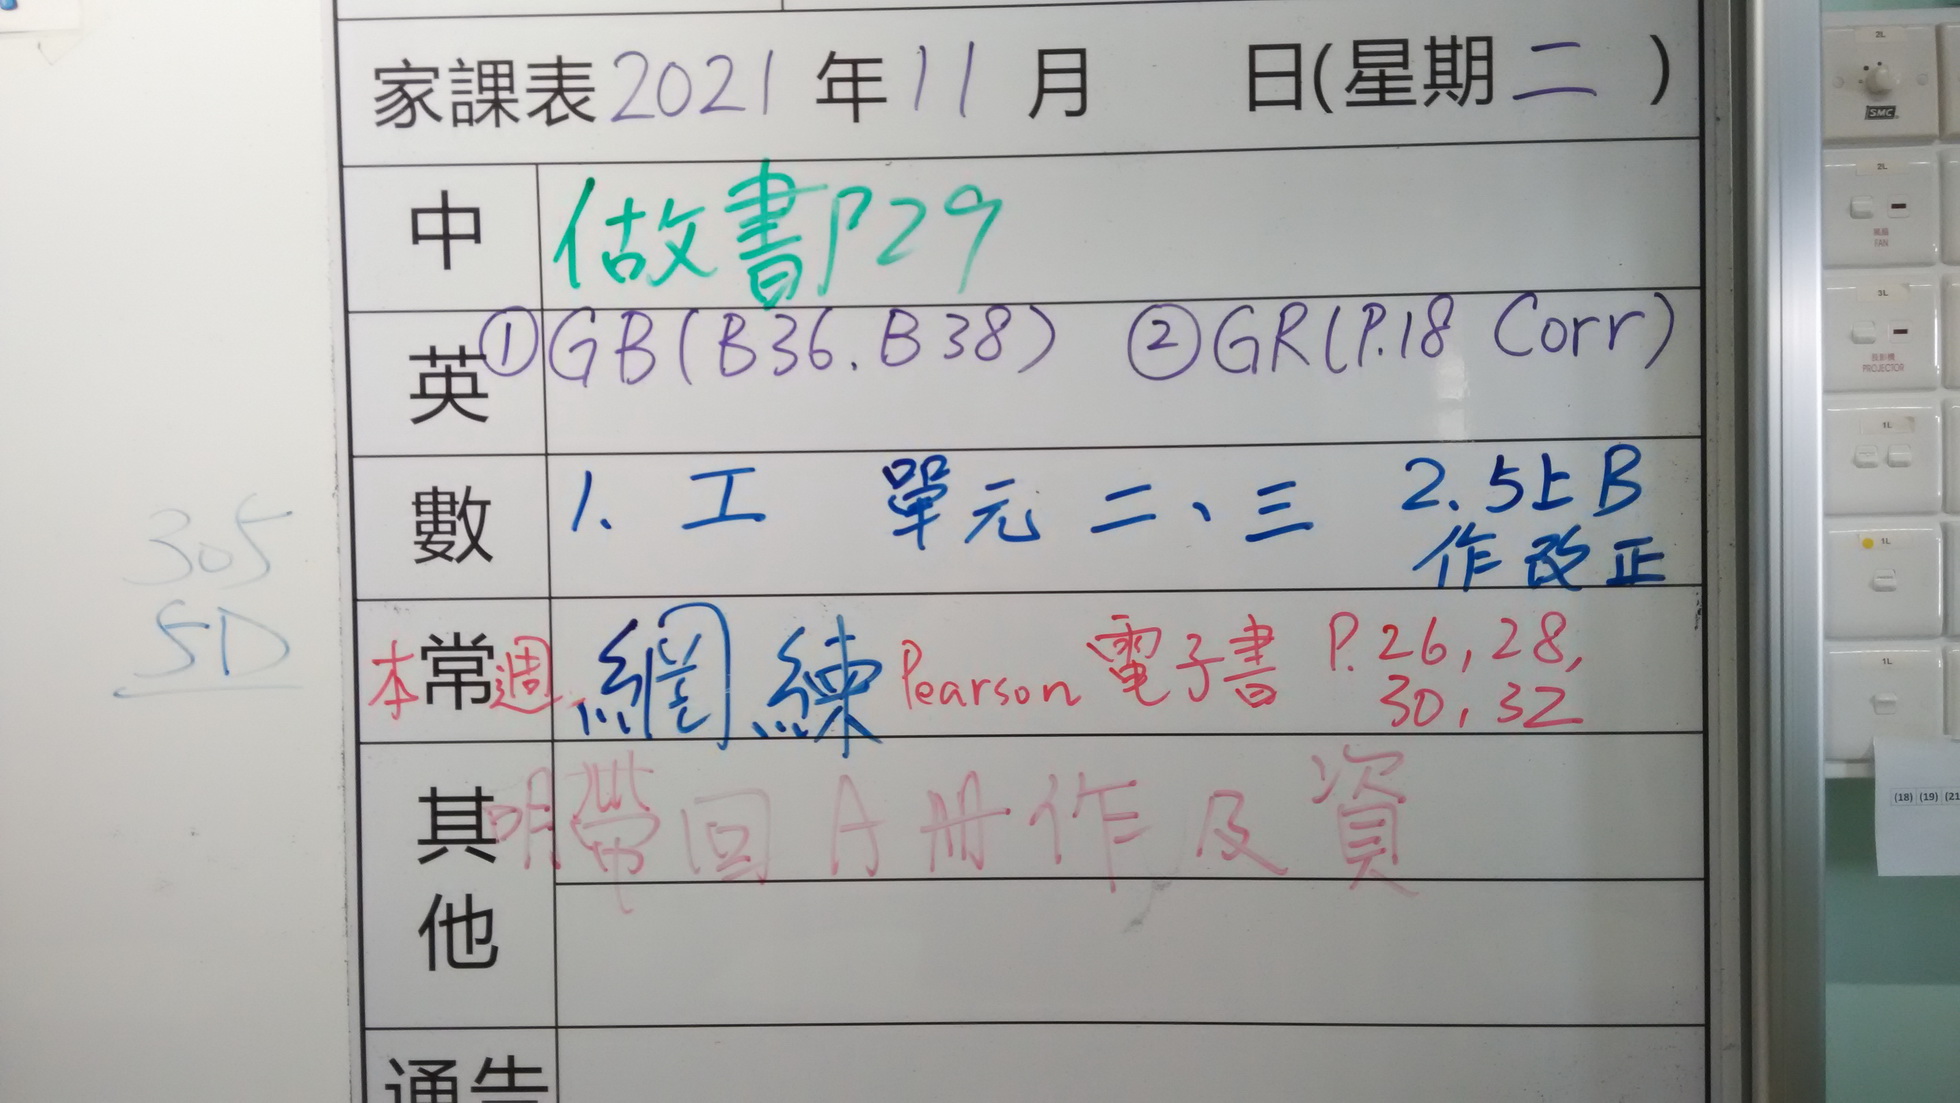 家課表2021年11月 日(星期二)
中 做書P29
英 ①GB(B36.B38) ②GR(P.18 Corr)
數 1. 工 單元 二、三 2.5上B
作改正
常 本週 網練 Pearson 電子書 P.26,28,
30,32
其他 明帶回A冊作及資
通告
305
5D
2L
SMC
2L
FAN
3L
投影機
PROJECTOR
1L
1L
1L
(18) (19) (21